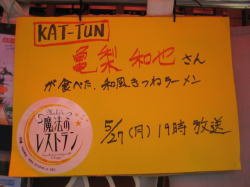 KAT-TUN
亀梨 和也 さん
が食べた、和風きつねラーメン
5/27(月)19時放送
魔法の
レストラン